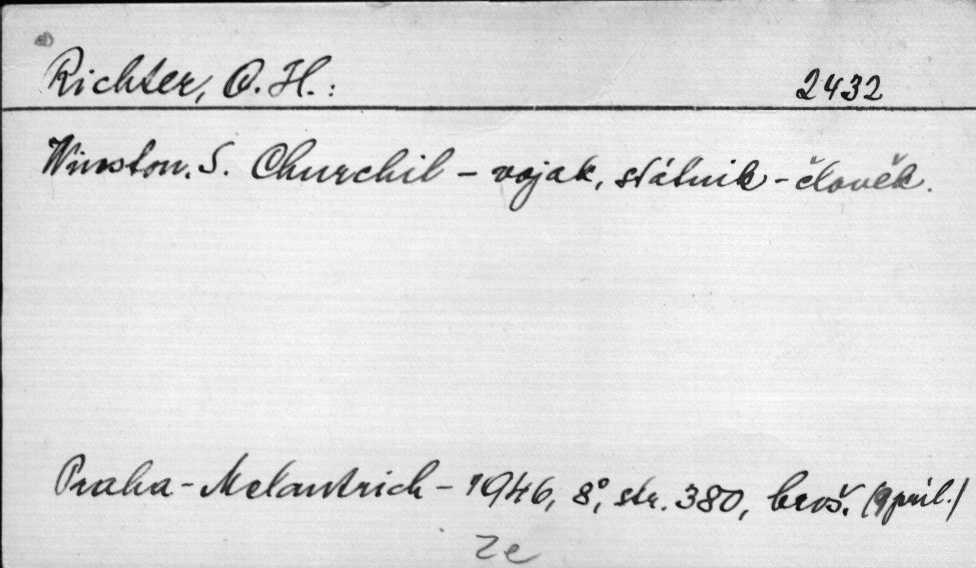 Richter, O. H.: 2432
Winston. S. Churchil - vojak, státnik - človêk.
Praha - Melantrich - 1946, 8°, str. 380, brož. (9 příl.)
Ze